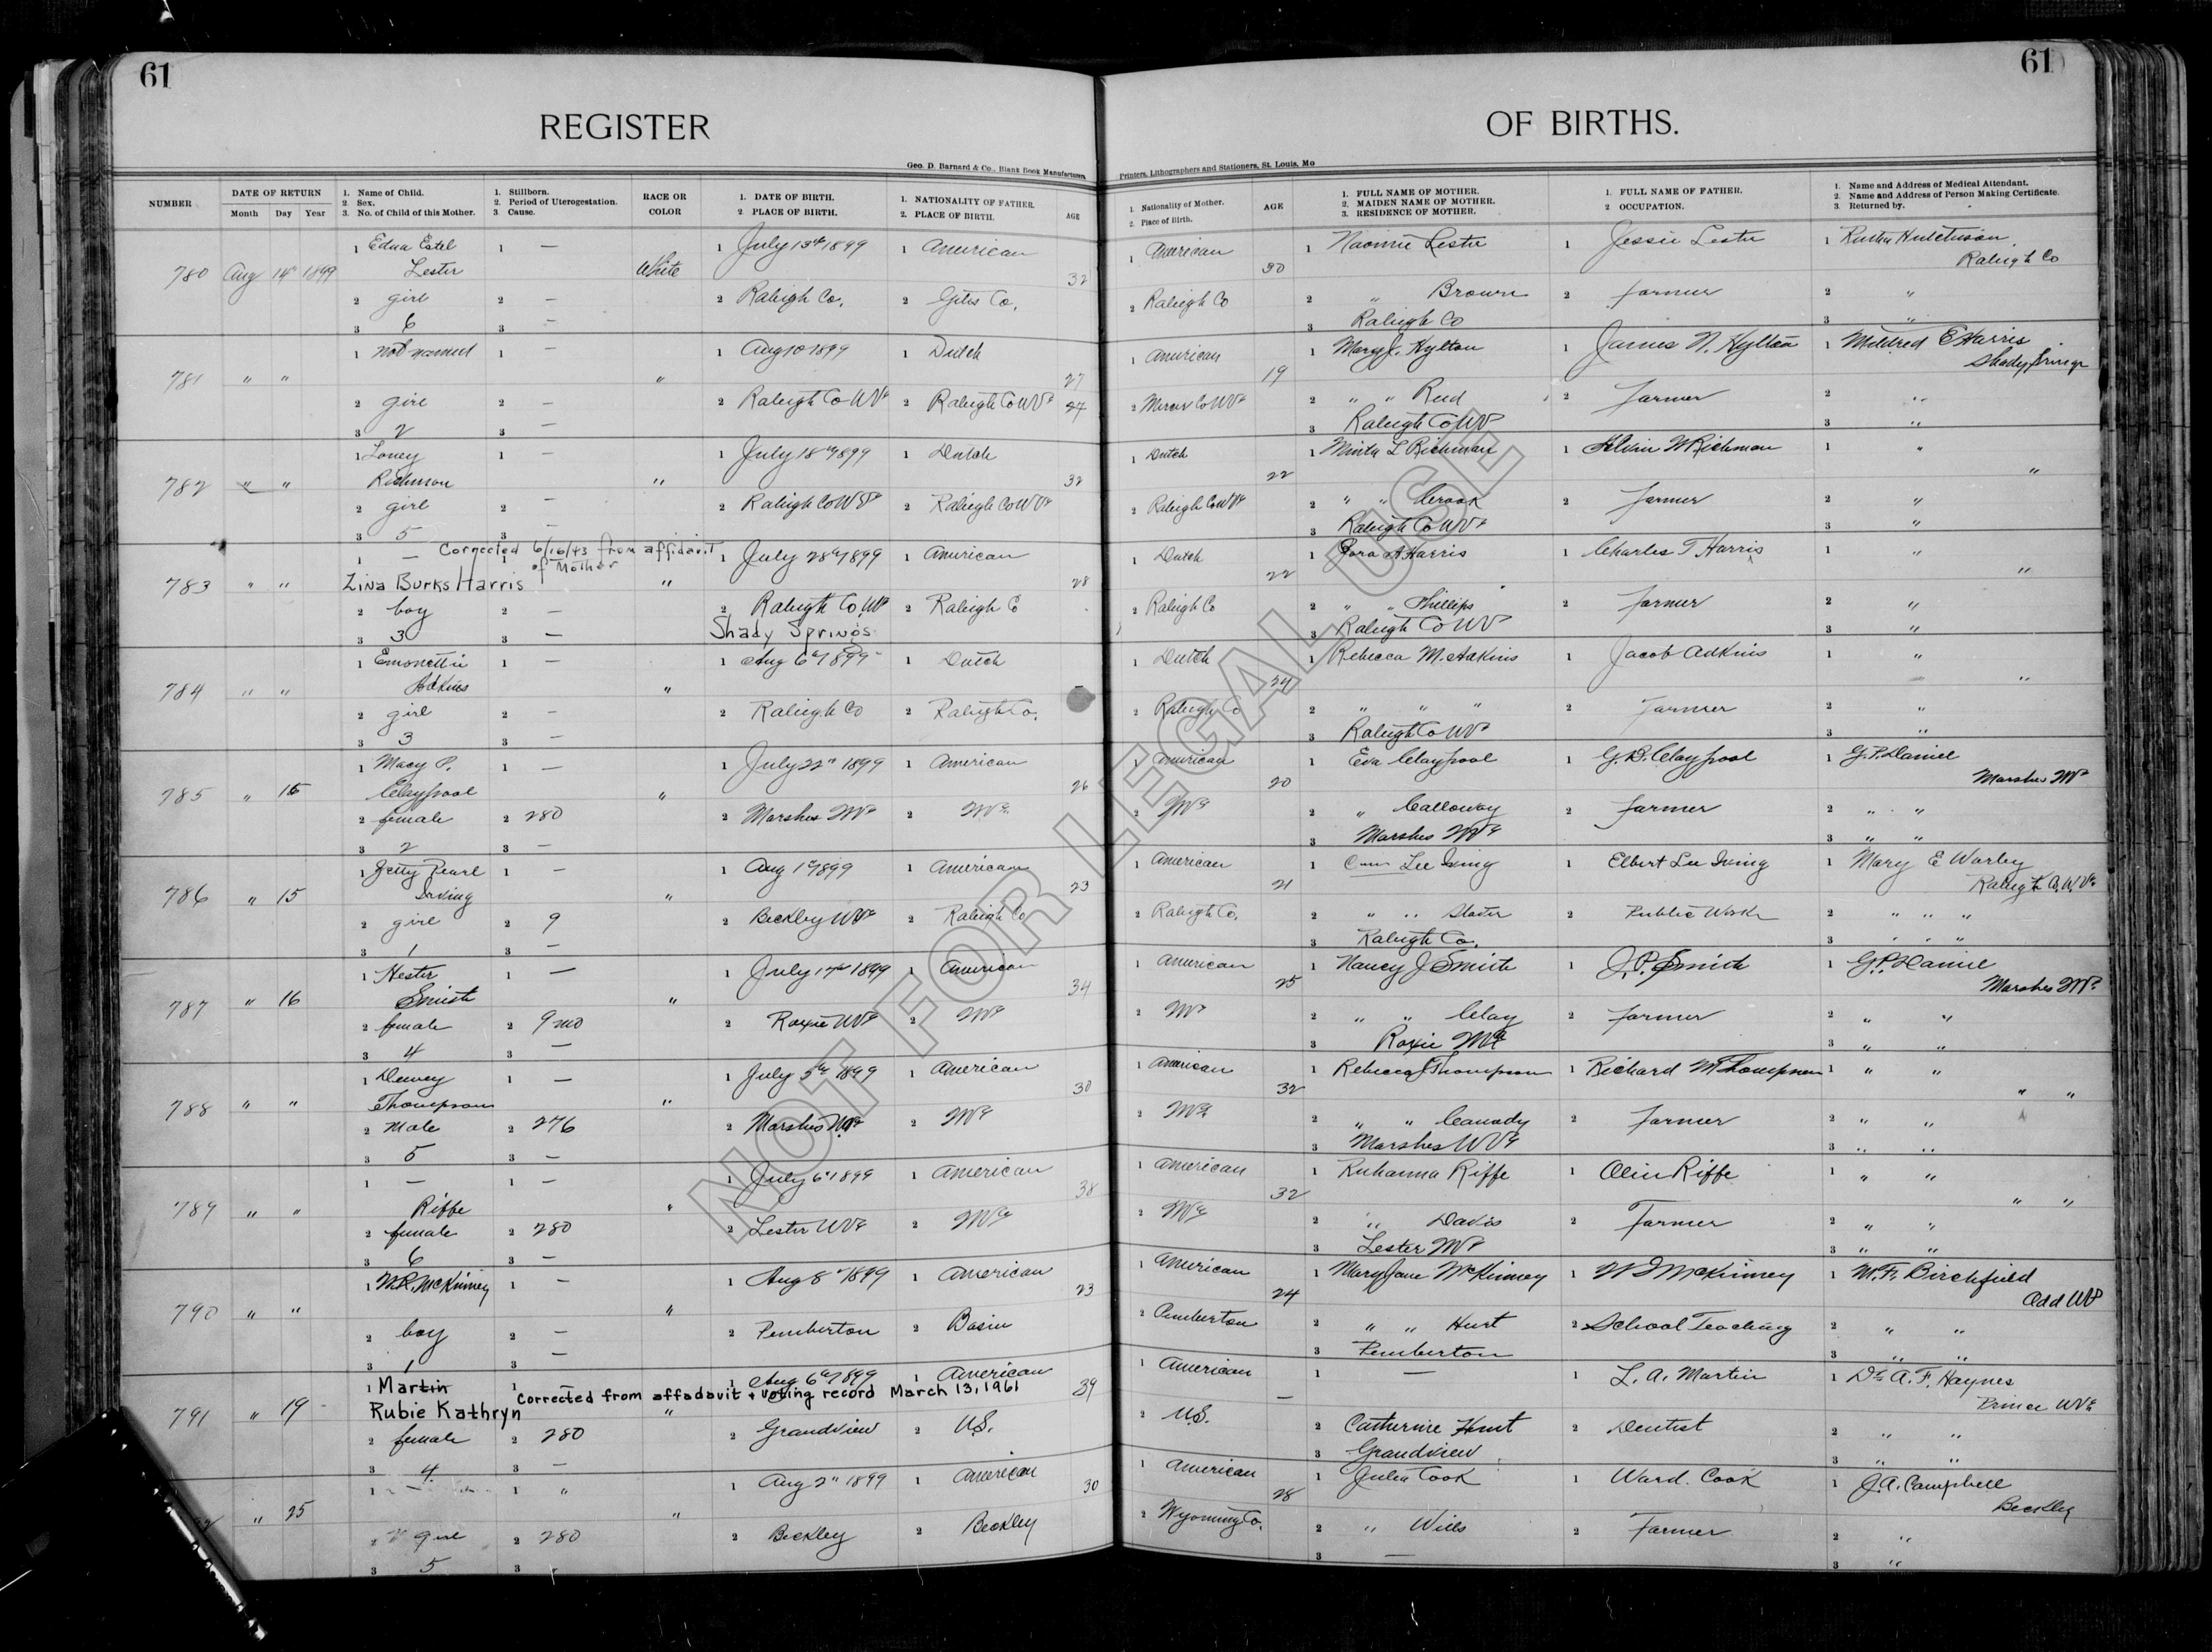 61
61
REGISTER
OF BIRTHS.
Geo. D. Barnard & Co., Blank Book Manufacturers,
Printers, Lithographers and Stationers, St. Louis, Mo
NUMBER
DATE OF RETURN
Month Day Year
1. Name of Child.
2. Sex.
3. No. of Child of this Mother.
1. Stillborn.
2. Period of Uterogestation.
3. Cause.
RACE OR
COLOR
1. DATE OF BIRTH.
2 PLACE OF BIRTH.
1. NATIONALITY OF FATHER.
2. PLACE OF BIRTH.
AGE
1. Nationality of Mother.
2 Place of Birth.
AGE
1. FULL NAME OF MOTHER.
2. MAIDEN NAME OF MOTHER.
3. RESIDENCE OF MOTHER.
1. FULL NAME OF FATHER.
2 OCCUPATION.
1. Name and Address of Medical Attendant.
2. Name and Address of Person Making Certificate.
3. Returned by.
1 Edna Estel 1 — 1 July 13th 1899 1 American 1 American 1 Naomie Lester 1 Jessie Lester 1 Hutchison
780 Aug 14" 1899 Lester White 32 30 Raleigh Co
2 girl 2 — 2 Raleigh Co. 2 Giles Co. 2 Raleigh Co 2 " Brown 2 farmer 2 "
3 6 3 — 3 Raleigh Co 3 "
1 not named 1 — 1 Aug 10 1899 1 Dutch 1 American 1 Mary J. Hylton 1 James N. Hylton 1 Mildred E Harris
781 " " " 27 19 Shady Springs
2 girl 2 — 2 Raleigh Co WVa 2 Raleigh Co WVa 27 2 Mercer Co WVa 2 " " Reed 2 farmer 2 "
3 2 3 — 3 Raleigh Co WVa 3 "
1 Loney 1 — 1 July 18th 1899 1 Dutch 1 Dutch 1 Minta L Richman 1 Alvin W Richman 1 "
782 " " Richman " 32 22 "
2 girl 2 — 2 Raleigh Co WVa 2 Raleigh Co WVa 2 Raleigh Co WVa 2 " " Crook 2 farmer 2 "
3 5 3 — 3 Raleigh Co WVa 3 "
1 — Corrected 6/16/43 from affidavit of Mother 1 July 28th 1899 1 American 1 Dutch 1 Cora A Harris 1 Charles T Harris 1 "
783 " " Zina Burks Harris " 28 22 "
2 boy 2 — 2 Raleigh Co WVa 2 Raleigh Co 2 Raleigh Co 2 " " Phillips 2 farmer 2 "
3 3 3 — Shady Springs 3 Raleigh Co WVa 3 "
1 Emonettie 1 — 1 Aug 6th 1899 1 Dutch 1 Dutch 1 Rebecca M. Adkins 1 Jacob Adkins 1 "
784 " " Adkins " — 24 "
2 girl 2 — 2 Raleigh Co 2 Raleigh Co. 2 Raleigh Co 2 " " " 2 farmer 2 "
3 3 3 — 3 Raleigh Co WVa 3 "
1 Macy P. 1 — 1 July 22" 1899 1 American 1 American 1 Eva Claypool 1 G.B. Claypool 1 G.P. Daniel
785 " 15 Claypool " 26 20 Marshes WVa
2 female 2 280 2 Marshes WVa 2 WVa 2 WVa 2 " Calloway 2 farmer 2 " "
3 2 3 — 3 Marshes WVa 3 " "
1 Getty Pearl 1 — 1 Aug 1st 1899 1 American 1 American 1 Lee Irving 1 Elbert Lee Irving 1 Mary E Warley
786 " 15 Irving " 23 21 Raleigh Co. W.Va
2 girl 2 9 2 Beckley WVa 2 Raleigh Co 2 Raleigh Co. 2 " " Slater 2 Public Work 2 " " "
3 1 3 — 3 Raleigh Co. 3 " " "
1 Hester 1 — 1 July 17th 1899 1 American 1 American 1 Nancy J Smith 1 J.P. Smith 1 G.P. Daniel
787 " 16 Smith " 34 25 Marshes WVa
2 female 2 9 mo 2 Roxie WVa 2 WVa 2 WVa 2 " " Clay 2 farmer 2 " "
3 4 3 — 3 Roxie WVa 3 " "
1 Dewey 1 — 1 July 5th 1899 1 American 1 American 1 Rebecca J Thompson 1 Richard M Thompson 1 " "
788 " " Thompson " 30 32 " "
2 Male 2 276 2 Marshes WVa 2 WVa 2 WVa 2 " " Canady 2 farmer 2 " "
3 5 3 — 3 Marshes WVa 3 " "
1 — 1 — 1 July 6" 1899 1 American 1 American 1 Ruhanna Riffe 1 Olin Riffe 1 " "
789 " " Riffe " 38 32 " "
2 female 2 280 2 Lester WVa 2 WVa 2 WVa 2 " Davis 2 Farmer 2 " "
3 6 3 — 3 Lester WVa 3 " "
1 W.R. McKinney 1 — 1 Aug 8" 1899 1 American 1 American 1 Mary Jane McKinney 1 McKinney 1 M.F. Birchfield
790 " " " 23 24 Odd WVa
2 boy 2 — 2 Pemberton 2 Basin 2 Pemberton 2 " " Hurt 2 School Teaching 2 " "
3 1 3 — 3 Pemberton 3 " "
1 Martin 1 — 1 Aug 6th 1899 1 American 1 American 1 — 1 L. A. Martin 1 Dr. A. F. Haynes
Corrected from affadavit + voting record March 13, 1961
791 " 19 Rubie Kathryn " 39 — Prince WVa
2 female 2 280 2 Grandview 2 U.S. 2 U.S. 2 Catherine Hunt 2 Dentist 2 " "
3 4 3 — 3 Grandview 3 " "
1 — 1 " 1 Aug 2" 1899 1 American 1 American 1 Julia Cook 1 Ward Cook 1 J.A. Campbell
92 " 25 " 30 28 Beckley
2 girl 2 280 2 Beckley 2 Beckley 2 Wyoming Co. 2 " Wills 2 Farmer 2 "
3 5 3 " 3 — 3 "
NOT FOR LEGAL USE